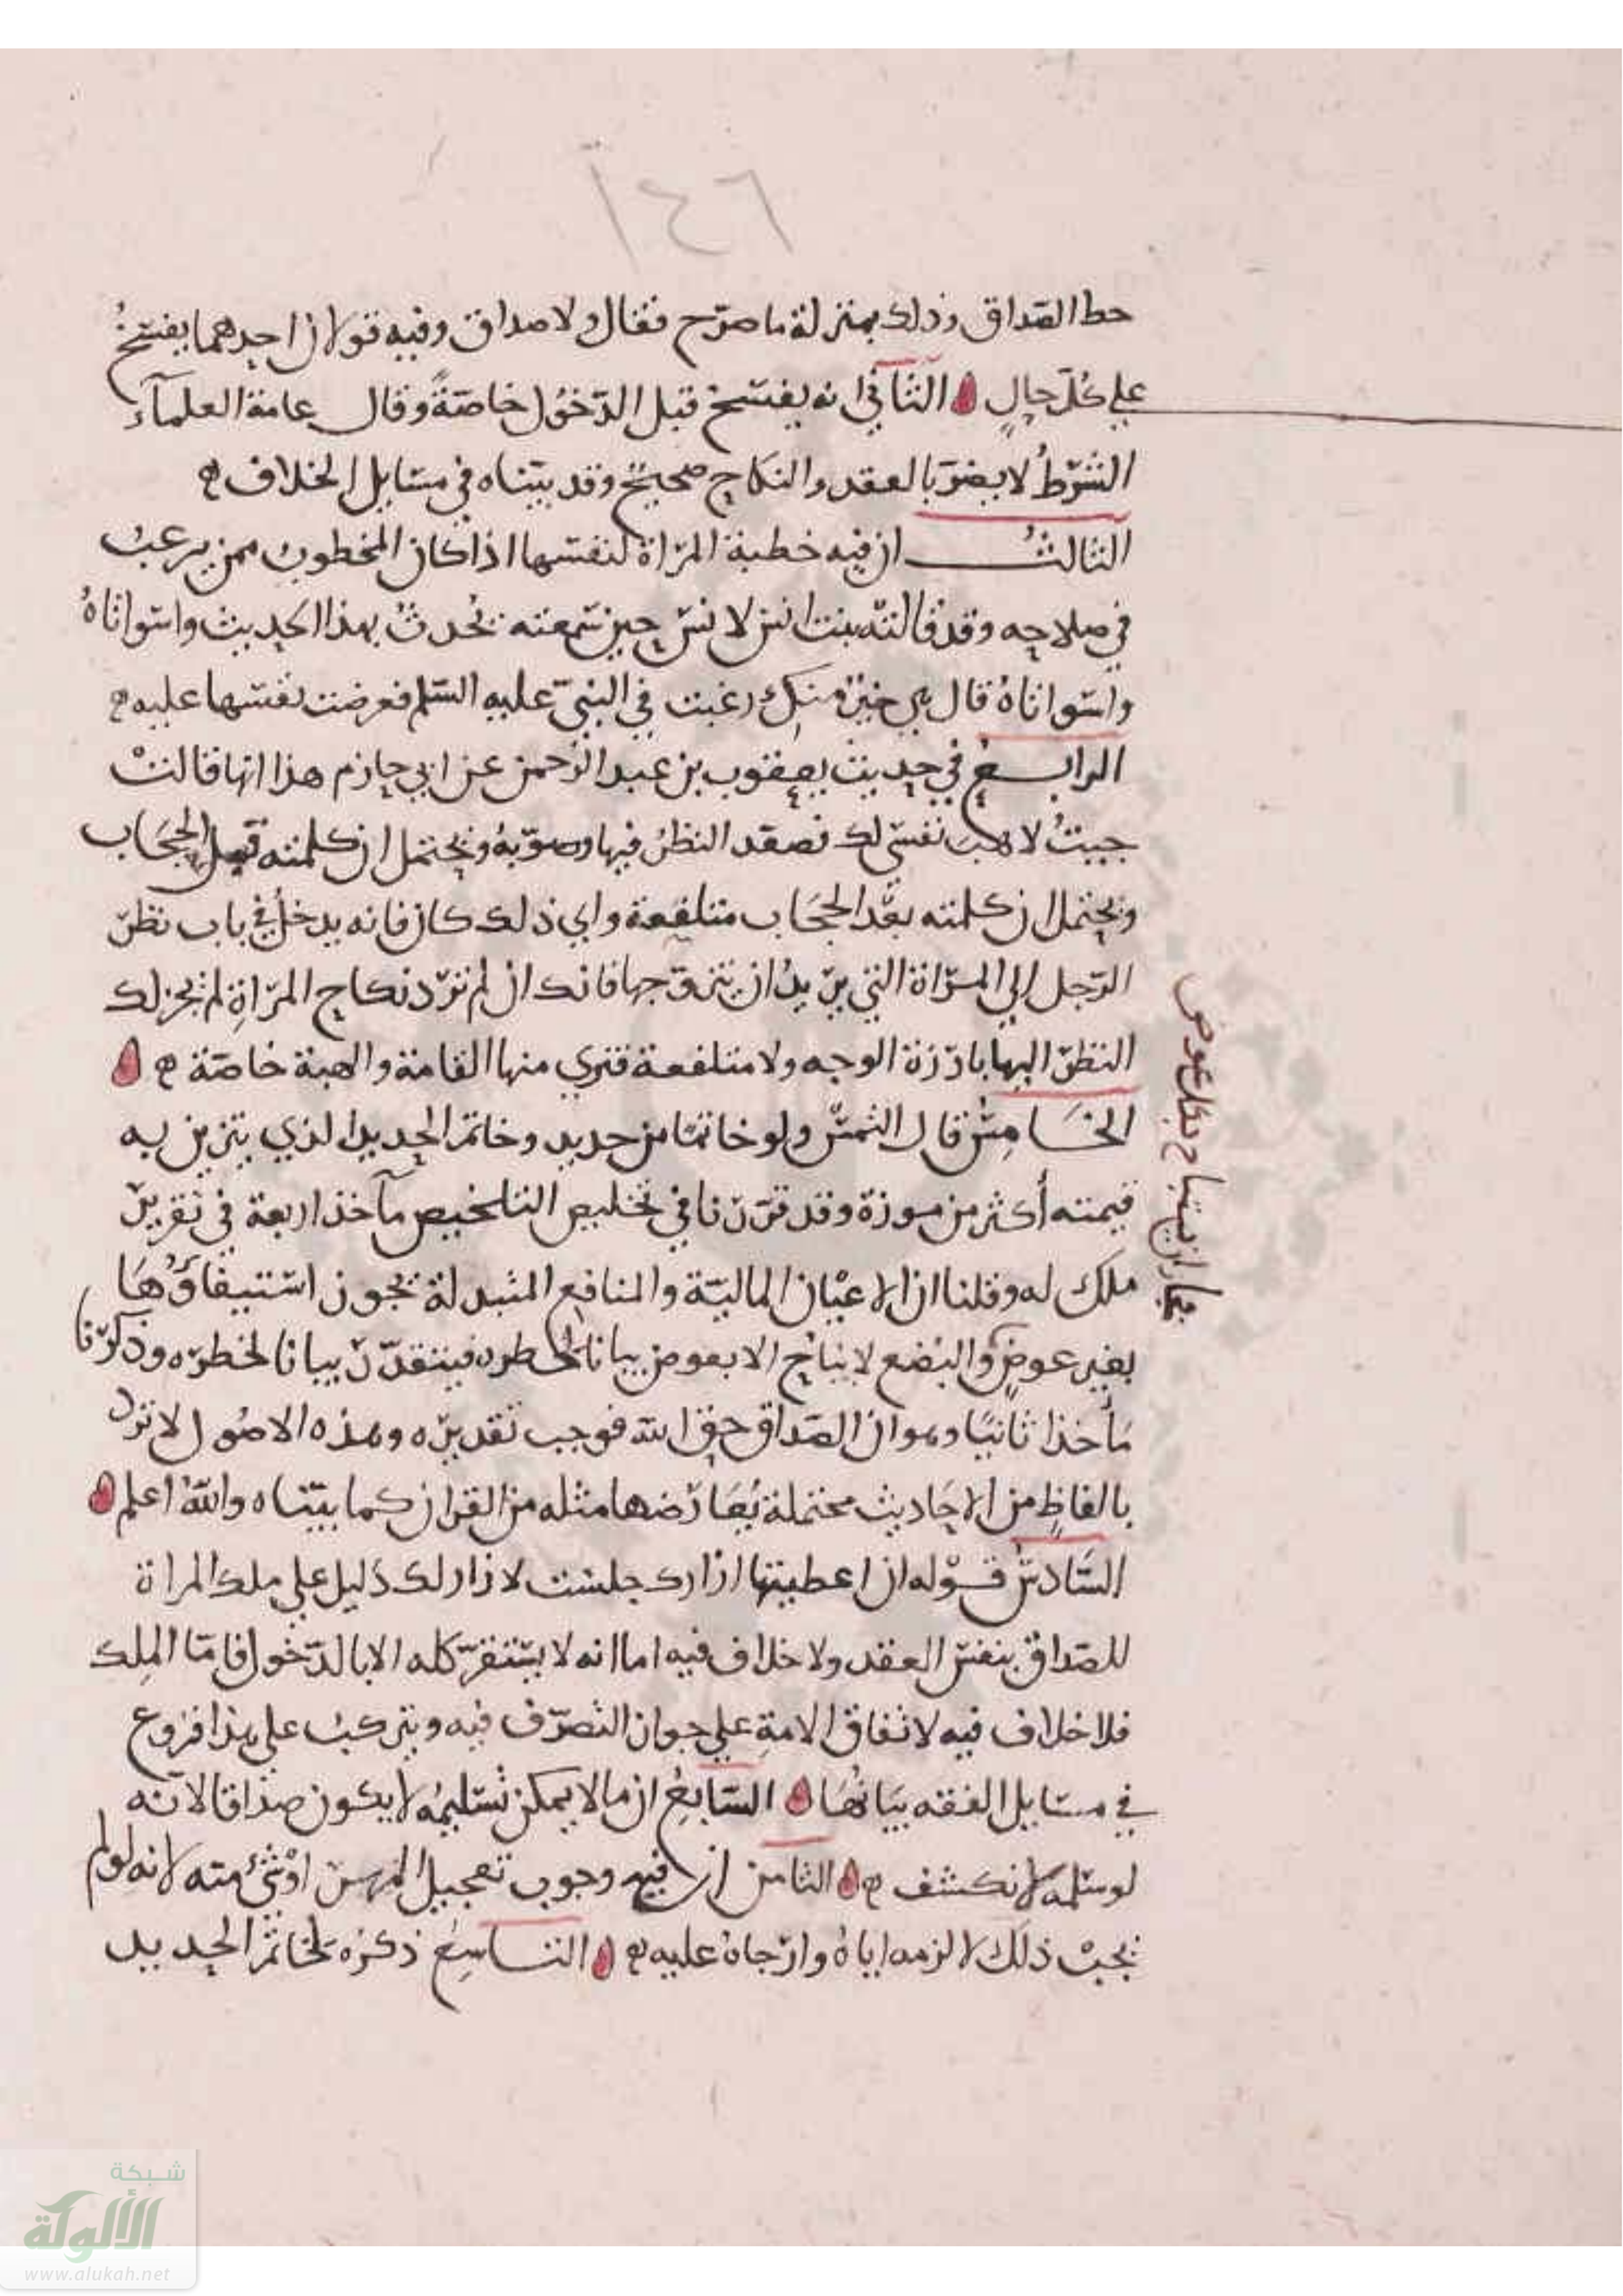 ١٤٦
حط الصّداق وذلك بمنزلة ما صرّح فقال ولا صداق وفيه قولان احدهما يفسخُ
علي كُلّ حالٍ الثاني انه يفسخ قبل الدّخُول خاصّةً وقال عامة العلمآء
الشّرطُ لا يضرّ بالعقد والنكاح صحيحٌ وقد بيّناه في مسايل الخلاف ه
الثالثُ ان فيه خطبة المرّاة لنفسها اذا كان المخطوب ممن يرغبُ
في صلاحه وقد قالت بنت انس لانس حين سمعته يُحدثُ بهذا الحديث واسواتاهُ
واسواتاهُ قال هي خيرٌ منكِ رغبت في النبيّ عليه السّلم فعرضت نفسها عليه ه
الرابع في حديث يعقوب بن عبد الرّحمن عن ابي حازم هذا انها قالتْ
جيتُ لاهبَ نفسي لك فصعّد النظرُ فيها وصوّبهُ ويحتمل ان كلمته قبل الحِجَاب
ويحتمل ان كلمته بعْد الحجَاب متلفعة واي ذلك كان فانه يدخل في باب نظر
الرّجل الي المرّاة التي يرّيدُ ان يتزوّجها فانك ان لم ترّد نكاح المرّاةِ لم يجز لك
النظرّ اليها بارّزة الوجه ولا متلفعة فتري منها القامة والهيئة خاصّة ه
الخَامِسُ قال التمسْ ولو خاتمًا من حديد وخاتم الحديد الذي يتزين به
قيمته أكثر من موزة وقد قرّرّنا في تخليص التلخيص مآخذ اربعة في تقريرّ
ملك له وقلنا ان الاعْيَان الماليّة والمنافع المبتدلة يجوز استيفاؤُهَا
بغير عوضٍ والبُضع لا يُباحُ الا بعوض بيانا لخطره فيتقدّرّ بيانا لخطرّه وذكرّنا
مَأخذا ثانيًا وهو ان الصّداق حق الله فوجب تقديرّه وهذه الاصُول لا تردّ
بالفاظٍ من الاحَاديث محتملة يُعَارّضها مثله من القران كما بيّناه واللهُ اعلم
السّادسُ قوْله ان اعطيتها ازارك جلست لا ازار لك دَليل علي ملك المراة
للصّداق بنفسّ العقد ولا خلاف فيه اما انه لا يسْتقرّ كله الا بالدّخول فامّا المِلك
فلا خلاف فيه لاتفاق الامةِ علي جواز التصرّف فيه ويتركبُ علي هذا فروع
في مسايل الفقه بيَانُهَا السّابعُ ان ما لا يمكن تسْليمُه لا يكون صداقا لانه
لو سلمه لانكشف ه الثامن ان فيه وجوب تعجيل المهر او شئ منه لانه لو لم
يجبْ ذلكَ لالزمه اياهُ وارّجاهُ عليه ه التاسِعُ ذكرُه لخاتمْ الحديد
بيان لا يباح بلا عوض
شبكة
الألوكة
www.alukah.net